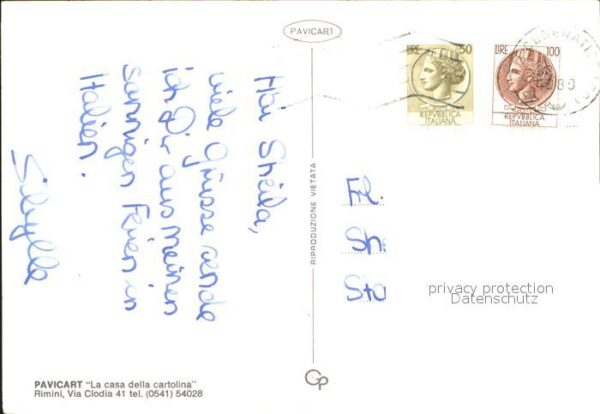 PAVICART
Hoi Sheila,
viele Grüsse sende
ich Dir aus meinen
sonnigen Ferien in
Italien.
Sibylle
RIPRODUZIONE VIETATA
LIRE 50
REPVBBLICA
ITALIANA
LIRE 100
REPVBBLICA
ITALIANA
Frl.
Sh.
Sto
privacy protection
Datenschutz
Gp
PAVICART "La casa della cartolina"
Rimini, Via Clodia 41 tel. (0541) 54028